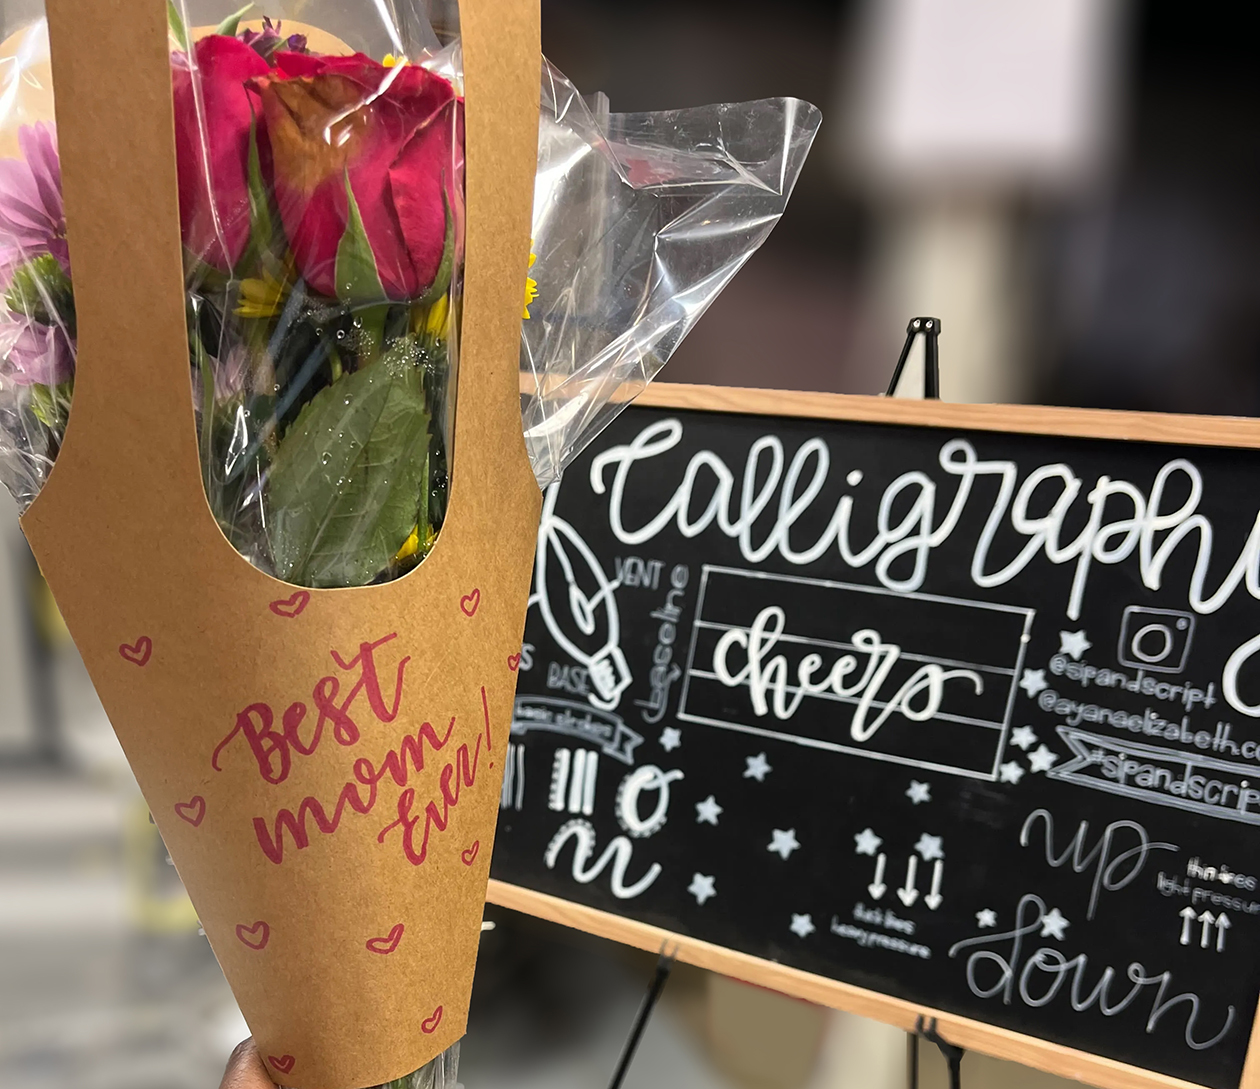 Best
mom
Ever!
Calligraphy
VENT
baseline
cheers
BASE
basic strokes
@sipandscript
@ayanaelizabeth.co
#sipandscrip
up
thin lines
light pressure
thick lines
heavy pressure
down